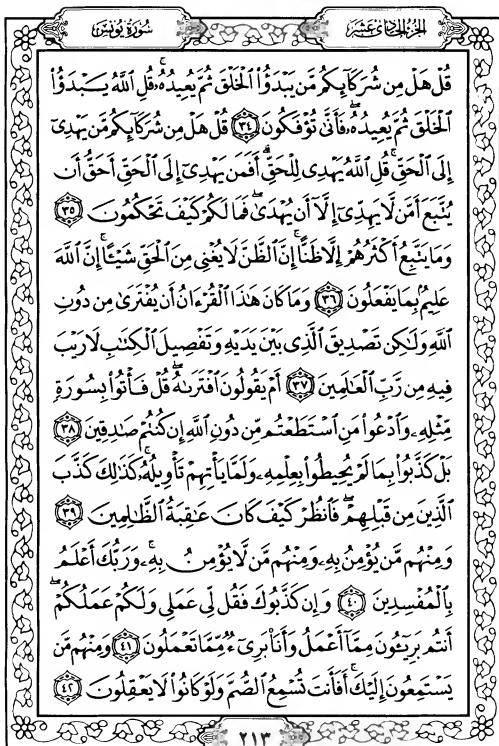 سُورَةُ يُونُسَ
الجُزْءُ الحَادِي عَشَرَ
قُلْ هَلْ مِن شُرَكَآئِكُم مَّن يَبْدَؤُا۟ ٱلْخَلْقَ ثُمَّ يُعِيدُهُۥۚ قُلِ ٱللَّهُ يَبْدَؤُا۟
ٱلْخَلْقَ ثُمَّ يُعِيدُهُۥۖ فَأَنَّىٰ تُؤْفَكُونَ ٣٤ قُلْ هَلْ مِن شُرَكَآئِكُم مَّن يَهْدِىٓ
إِلَى ٱلْحَقِّۚ قُلِ ٱللَّهُ يَهْدِى لِلْحَقِّۗ أَفَمَن يَهْدِىٓ إِلَى ٱلْحَقِّ أَحَقُّ أَن
يُتَّبَعَ أَمَّن لَّا يَهِدِّىٓ إِلَّآ أَن يُهْدَىٰۖ فَمَا لَكُمْ كَيْفَ تَحْكُمُونَ ٣٥
وَمَا يَتَّبِعُ أَكْثَرُهُمْ إِلَّا ظَنًّاۚ إِنَّ ٱلظَّنَّ لَا يُغْنِى مِنَ ٱلْحَقِّ شَيْـًٔاۚ إِنَّ ٱللَّهَ
عَلِيمٌۢ بِمَا يَفْعَلُونَ ٣٦ وَمَا كَانَ هَٰذَا ٱلْقُرْءَانُ أَن يُفْتَرَىٰ مِن دُونِ
ٱللَّهِ وَلَٰكِن تَصْدِيقَ ٱلَّذِى بَيْنَ يَدَيْهِ وَتَفْصِيلَ ٱلْكِتَٰبِ لَا رَيْبَ
فِيهِ مِن رَّبِّ ٱلْعَٰلَمِينَ ٣٧ أَمْ يَقُولُونَ ٱفْتَرَىٰهُۖ قُلْ فَأْتُوا۟ بِسُورَةٍ
مِّثْلِهِۦ وَٱدْعُوا۟ مَنِ ٱسْتَطَعْتُم مِّن دُونِ ٱللَّهِ إِن كُنتُمْ صَٰدِقِينَ ٣٨
بَلْ كَذَّبُوا۟ بِمَا لَمْ يُحِيطُوا۟ بِعِلْمِهِۦ وَلَمَّا يَأْتِهِمْ تَأْوِيلُهُۥۚ كَذَٰلِكَ كَذَّبَ
ٱلَّذِينَ مِن قَبْلِهِمْۖ فَٱنظُرْ كَيْفَ كَانَ عَٰقِبَةُ ٱلظَّٰلِمِينَ ٣٩
وَمِنْهُم مَّن يُؤْمِنُ بِهِۦ وَمِنْهُم مَّن لَّا يُؤْمِنُ بِهِۦۚ وَرَبُّكَ أَعْلَمُ
بِٱلْمُفْسِدِينَ ٤٠ وَإِن كَذَّبُوكَ فَقُل لِّى عَمَلِى وَلَكُمْ عَمَلُكُمْۖ
أَنتُم بَرِيٓـُٔونَ مِمَّآ أَعْمَلُ وَأَنَا۠ بَرِىٓءٌ مِّمَّا تَعْمَلُونَ ٤١ وَمِنْهُم مَّن
يَسْتَمِعُونَ إِلَيْكَۚ أَفَأَنتَ تُسْمِعُ ٱلصُّمَّ وَلَوْ كَانُوا۟ لَا يَعْقِلُونَ ٤٢
٢١٣